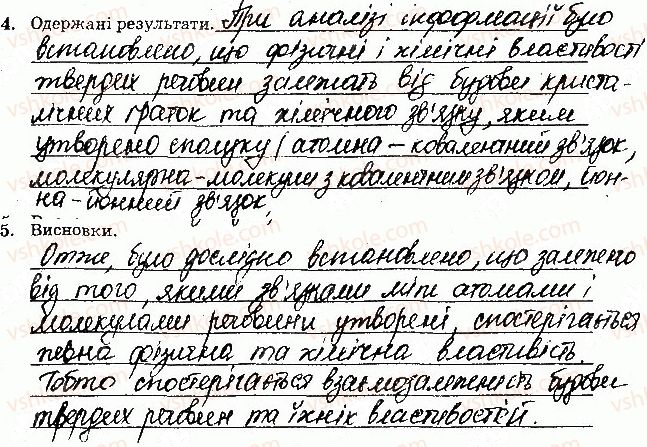 4. Одержані результати. При аналізі інформації було
встановлено, що фізичні і хімічні властивості
твердих речовин залежать від будови криста-
лічних ґраток та хімічного зв'язку, яким
утворено сполуку (атомна – ковалентний зв'язок,
молекулярна – молекули з ковалентним зв'язком, йон-
на – йонний зв'язок,
5. Висновки.
Отже, було дослідно встановлено, що залежно
від того, якими зв'язками між атомами і
молекулами речовини утворені, спостерігається
певна фізична та хімічна властивість.
Тобто спостерігається взаємозалежність будови
твердих речовин та їхніх властивостей.